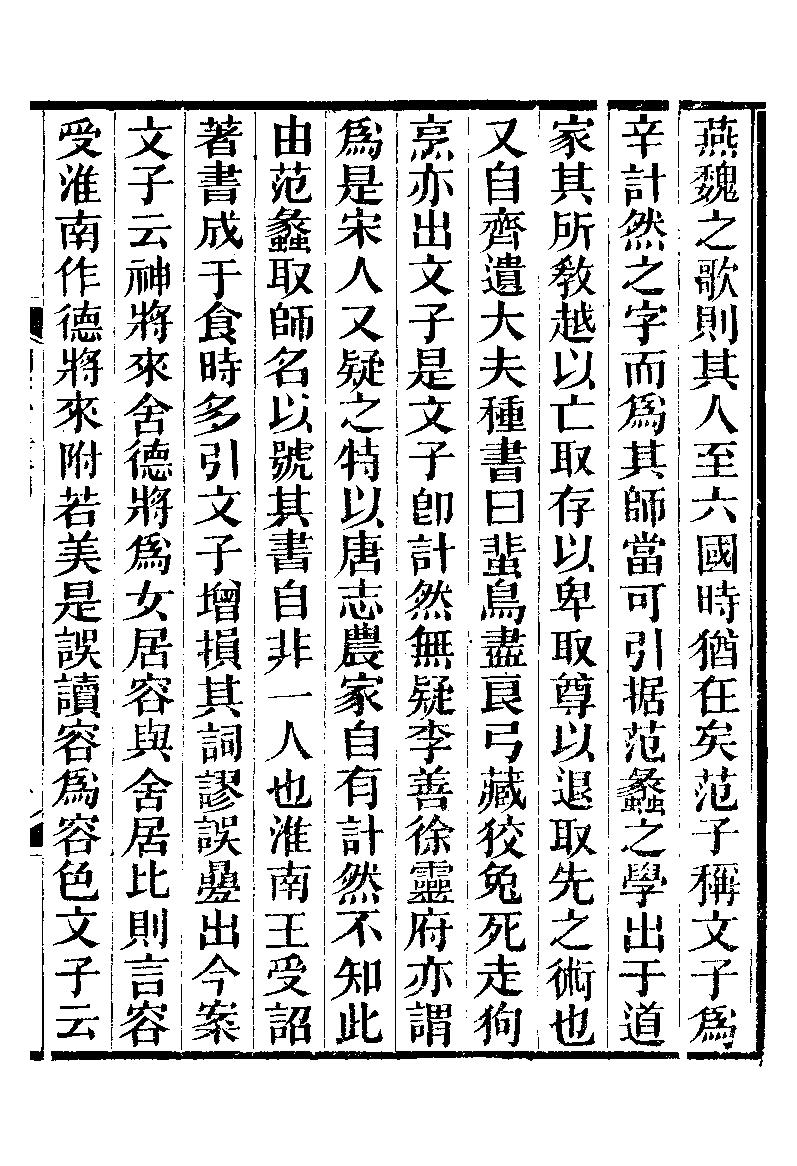 燕魏之歌則其人至六國時猶在矣范子稱文子為
辛計然之字而為其師當可引据范蠡之學出于道
家其所教越以亡取存以卑取尊以退取先之術也
又自齊遺大夫種書曰蜚鳥盡良弓藏狡兔死走狗
烹亦出文子是文子卽計然無疑李善徐靈府亦謂
為是宋人又疑之特以唐志農家自有計然不知此
由范蠡取師名以號其書自非一人也淮南王受詔
著書成于食時多引文子增損其詞謬誤疊出今案
文子云神將來舍德將為女居容與舍居比則言容
受淮南作德將來附若美是誤讀容為容色文子云